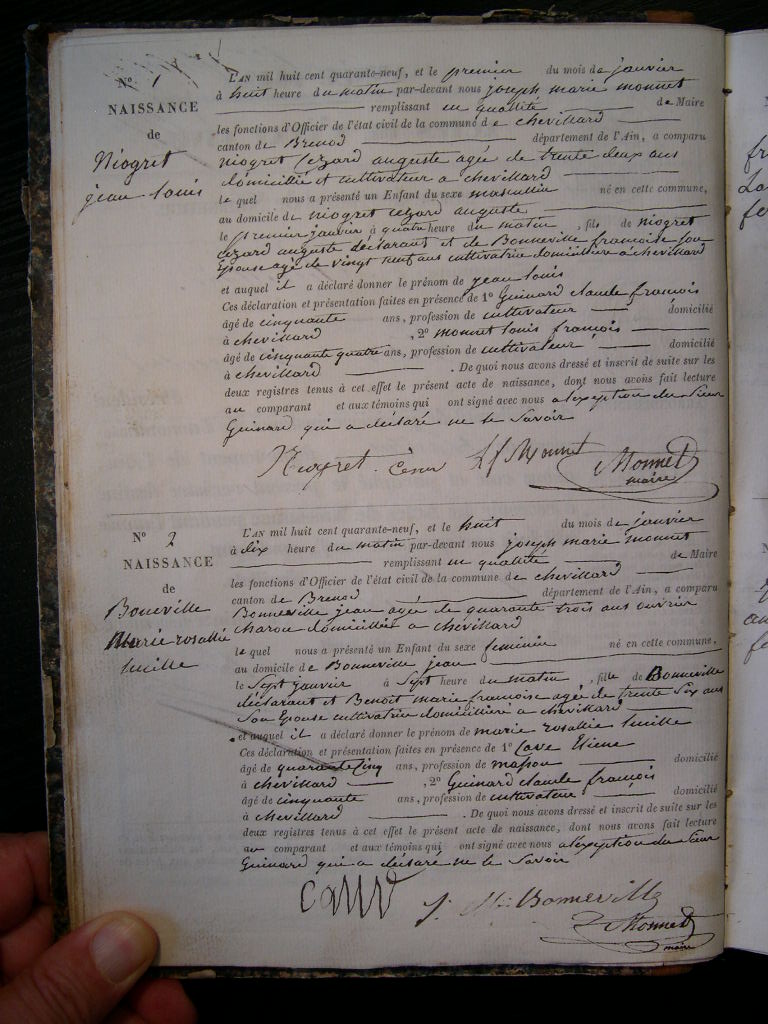 N° 1
NAISSANCE
de
Niogret
jean louis
L'AN mil huit cent quarante-neuf, et le premier du mois de janvier
à huit heure du matin par-devant nous joseph marie monnet
remplissant en quallité de Maire
les fonctions d'Officier de l'état civil de la commune de chevillard
canton de Brenod département de l'Ain, a comparu
niogret Cezard auguste agée de trente deux ans
domicillié et cultivateur a chevillard
le quel nous a présenté un Enfant du sexe masculin né en cette commune,
au domicile de niogret cezard auguste
le premier janvier à quatre heure du matin, fils de niogret
Cezard auguste déclarant et de Bonneville françoise son
Epouse agé de vingt neuf ans cultivatrice domicillière a chevillard
et auquel il a déclaré donner le prénom de jean louis
Ces déclaration et présentation faites en présence de 1° Guinard claude françois
âgé de cinquante ans, profession de cultivateur domicilié
à chevillard, 2° monnet louis françois
âgé de cinquante quatre ans, profession de cultivateur domicilié
à chevillard. De quoi nous avons dressé et inscrit de suite sur les
deux registres tenus à cet effet le présent acte de naissance, dont nous avons fait lecture
au comparant et aux témoins qui ont signé avec nous a l'exeption du sieur
Guinard qui a déclaré ne le Savoir
Niogret Cesar L f Monnet Monnet
maire
N° 2
NAISSANCE
de
Boneville
Marie rosallie
lucille
L'AN mil huit cent quarante-neuf, et le huit du mois de janvier
à dix heure du matin par-devant nous joseph marie monnet
remplissant en quallité de Maire
les fonctions d'Officier de l'état civil de la commune de chevillard
canton de Brenod département de l'Ain, a comparu
Bonneville jean agée de quarante trois ans ouvrier
charon domicilliés a chevillard
le quel nous a présenté un Enfant du sexe feminin né en cette commune,
au domicile de Bonneville jean
le Sept janvier à Sept heure du matin, fille de Bonneville
déclarant et Benoit marie françoise agée de trente Six ans
Son Epouse cultivatrice domicillière a chevillard
et auquel il a déclaré donner le prénom de marie rosallie lucille
Ces déclaration et présentation faites en présence de 1° Cave Etiene
âgé de quarante Cinq ans, profession de masson domicilié
à chevillard, 2° Guinard claude françois
âgé de cinquante ans, profession de cultivateur domicilié
à chevillard. De quoi nous avons dressé et inscrit de suite sur les
deux registres tenus à cet effet le présent acte de naissance, dont nous avons fait lecture
au comparant et aux témoins qui ont signé avec nous a l'exeption du sieur
Guinard qui a déclaré ne le Savoir
Bonneville
Monnet
maire